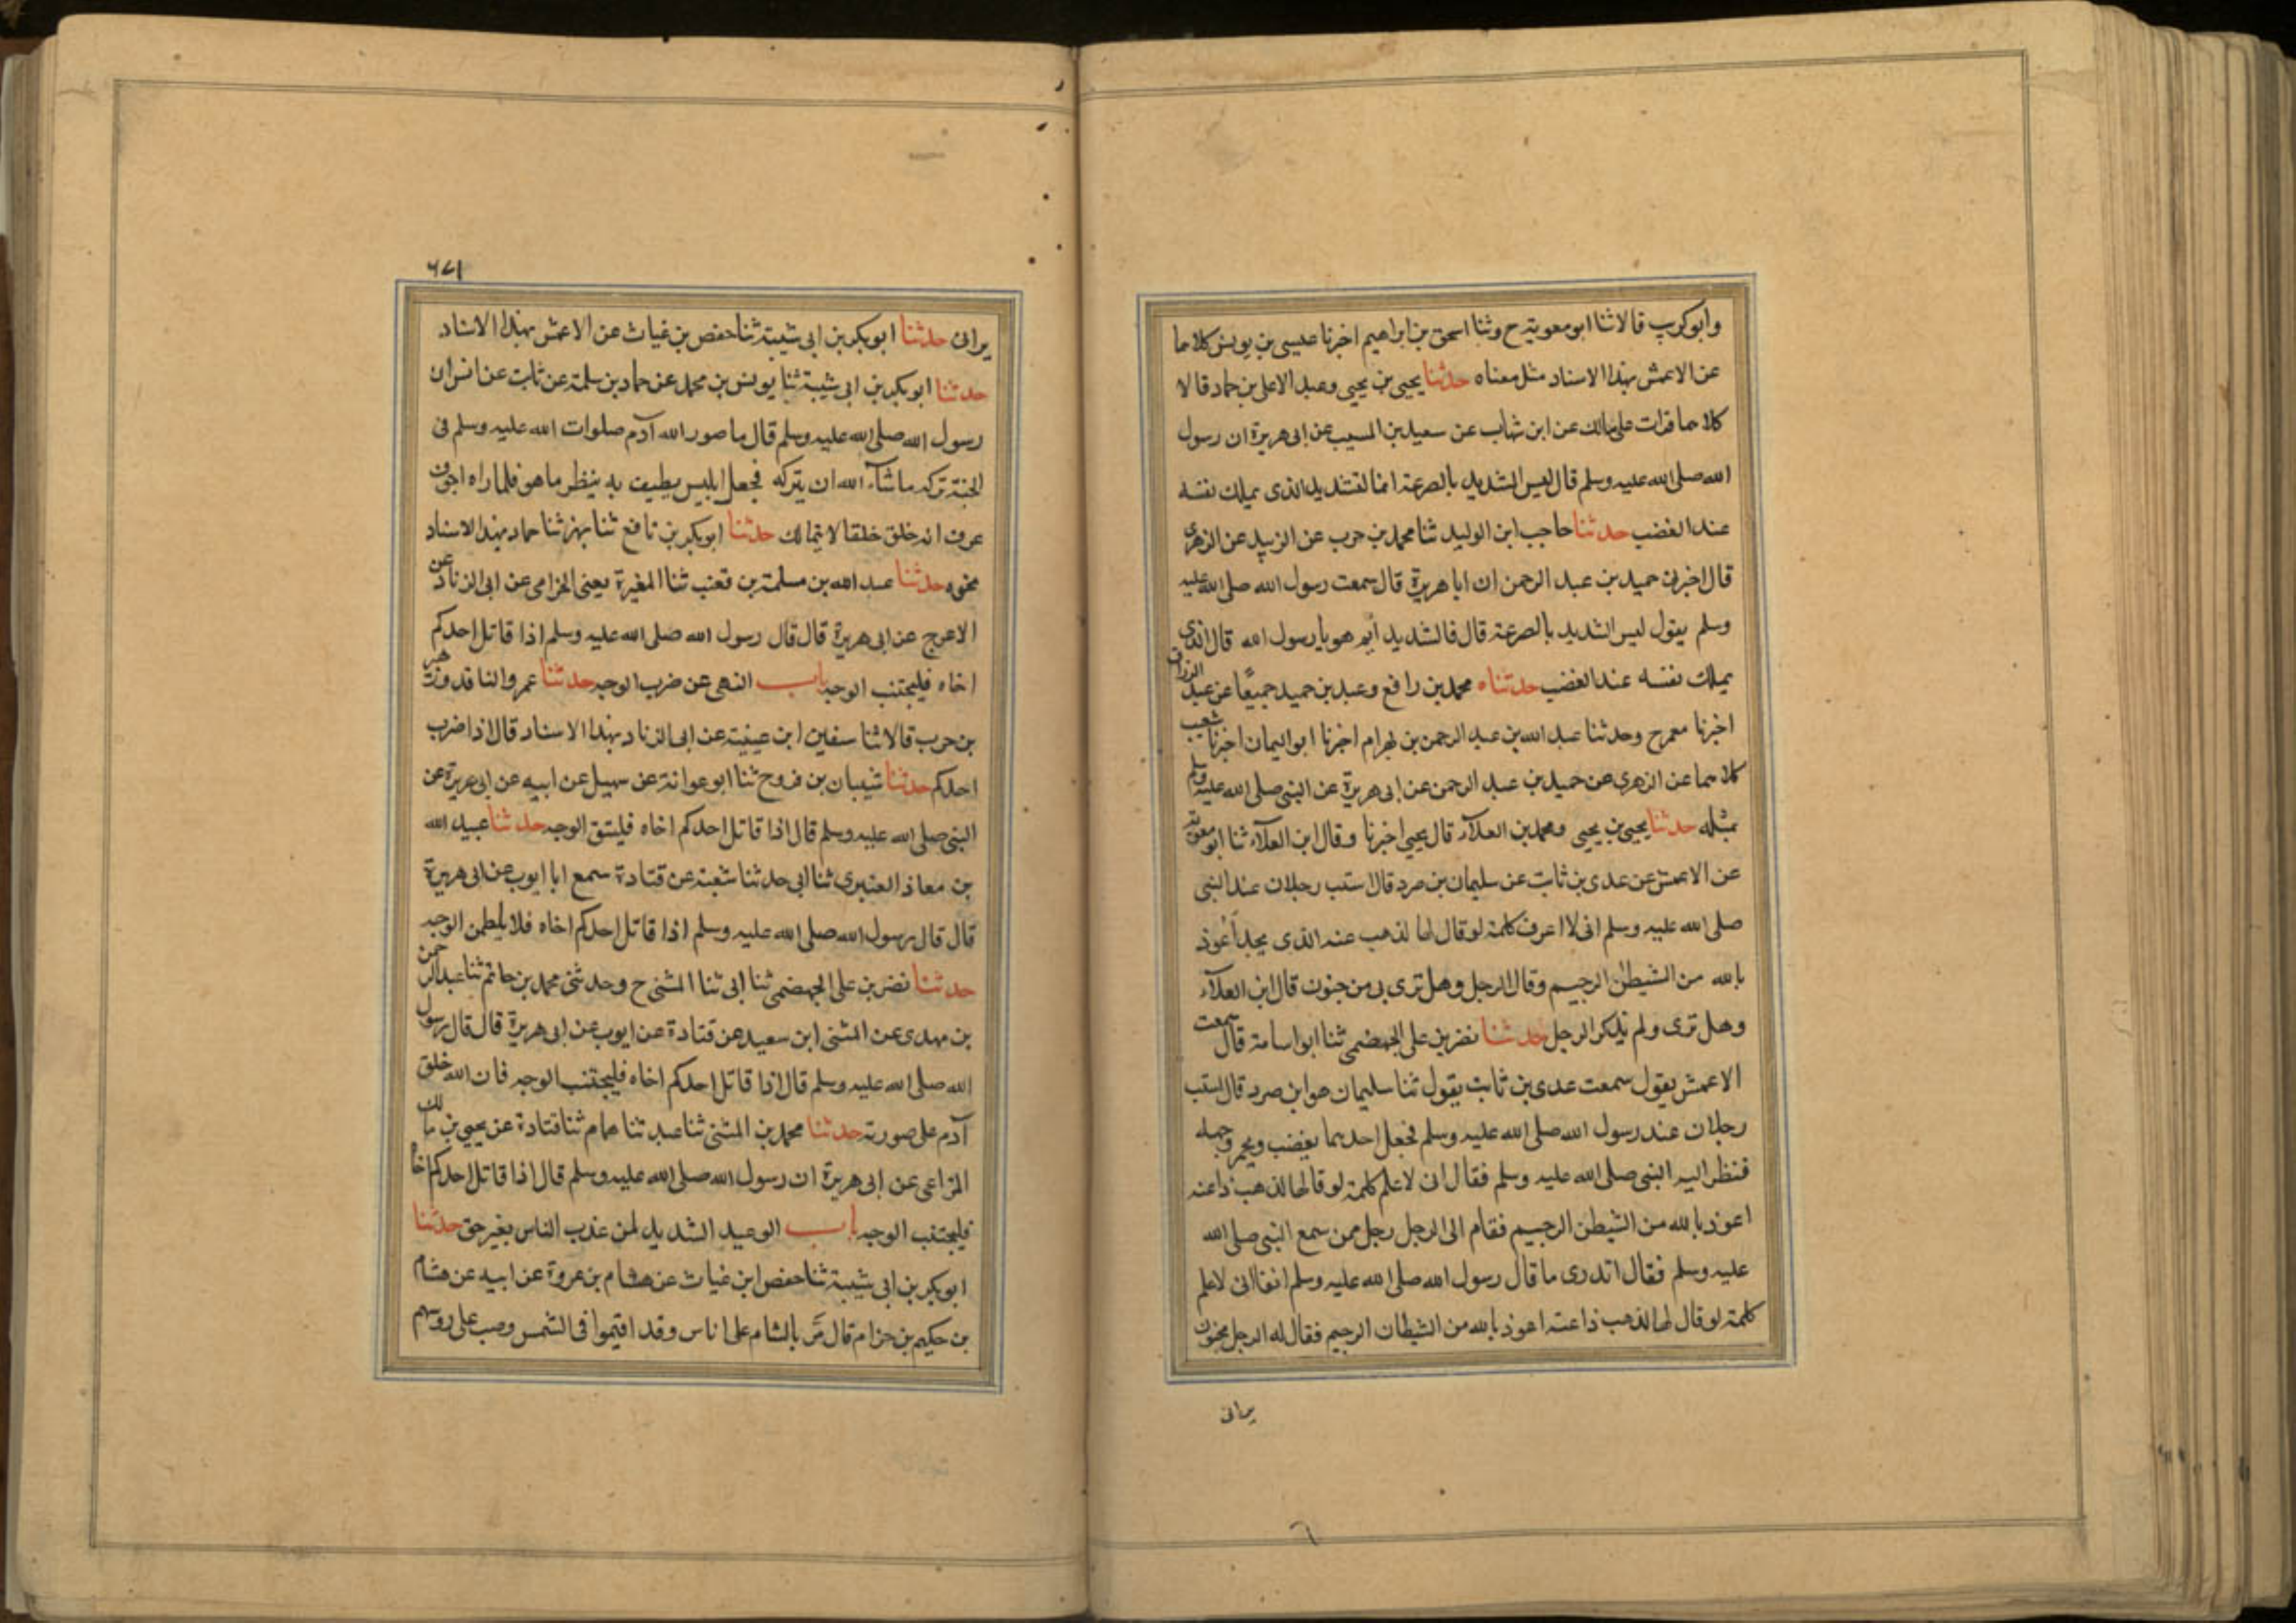 وابوكريب قالا ثنا ابو معوية ح وثنا اسحق بن ابراهيم اخبرنا عيسى بن يونس كلاهما
عن الاعمش بهذا الاسناد مثل معناه حدثنا يحيى بن يحيى وعبد الاعلى بن حماد قالا
كلاهما قرات على مالك عن ابن شهاب عن سعيد بن المسيب عن ابى هريرة ان رسول
الله صلى الله عليه وسلم قال ليس الشديد بالصرعة انما الشديد الذى يملك نفسه
عند الغضب حدثنا حاجب ابن الوليد ثنا محمد بن حرب عن الزبيد عن الزهرى
قال اخبرنى حميد بن عبد الرحمن ان ابا هريرة قال سمعت رسول الله صلى الله عليه
وسلم يقول ليس الشديد بالصرعة قال فالشديد ايم هو يا رسول الله قال الذى
يملك نفسه عند الغضب حدثناه محمد بن رافع وعبد بن حميد جميعًا عن عبد الرزاق
اخبرنا معمر ح وحدثنا عبد الله بن عبد الرحمن بن بهرام اخبرنا ابو اليمان اخبرنا شعيب
كلاهما عن الزهرى عن حميد بن عبد الرحمن عن ابى هريرة عن النبى صلى الله عليه وسلم
بمثله حدثنا يحيى بن يحيى ومحمد بن العلآء قال يحيى اخبرنا وقال ابن العلآء ثنا ابو معوية
عن الاعمش عن عدى بن ثابت عن سليمان بن صرد قال استب رجلان عند النبى
صلى الله عليه وسلم انى لا اعرف كلمة لو قال لها لذهب عنه الذى يجد أعوذ
بالله من الشيطن الرجيم وقال الرجل وهل ترى بى من جنون قال ابن العلآء
وهل ترى ولم يذكر الرجل حدثنا نضر بن على الجهضمى ثنا ابو اسامة قال سمعت
الاعمش يقول سمعت عدى بن ثابت يقول ثنا سليمان هو ابن صرد قال استب
رجلان عند رسول الله صلى الله عليه وسلم فجعل احدهما يغضب ويحمر وجهه
فنظر اليه النبى صلى الله عليه وسلم فقال انى لاعلم كلمة لو قالها لذهب ذا عنه
اعوذ بالله من الشيطن الرجيم فقام الى الرجل رجل ممن سمع النبى صلى الله
عليه وسلم فقال اتدرى ما قال رسول الله صلى الله عليه وسلم انفا انى لاعلم
كلمة لو قال لها لذهب ذا عنه اعوذ بالله من الشيطان الرجيم فقال له الرجل مجنون
يرانى
٦٧١
يرانى حدثنا ابوبكر بن ابى شيبة ثنا حفص بن غياث عن الاعمش بهذا الاسناد
حدثنا ابوبكر بن ابى شيبة ثنا يونس بن محمد عن حماد بن سلمة عن ثابت عن انس ان
رسول الله صلى الله عليه وسلم قال ما صور الله آدم صلوات الله عليه وسلم فى
الجنة تركه ماشآء الله ان يتركه فجعل ابليس يطيف به ينظر ما هو فلما راه اجوف
عرف انه خلق خلقا لا يتمالك حدثنا ابوبكر بن نافع ثنا بهز ثنا حماد بهذا الاسناد
نحوه حدثنا عبد الله بن مسلمة بن قعنب ثنا المغيرة يعنى الحزامى عن ابى الزناد عن
الاعرج عن ابى هريرة قال قال رسول الله صلى الله عليه وسلم اذا قاتل احدكم
اخاه فليجتنب الوجه باب النهى عن ضرب الوجه حدثنا عمرو الناقد وزهير
بن حرب قالا ثنا سفين ابن عيينة عن ابى الزناد بهذا الاسناد قال اذا ضرب
احدكم حدثنا شيبان بن فروح ثنا ابو عوانة عن سهيل عن ابيه عن ابى هريرة عن
النبى صلى الله عليه وسلم قال اذا قاتل احدكم اخاه فليتق الوجه حدثنا عبيد الله
بن معاذ العنبرى ثنا ابى حدثنا شعبة عن قتادة سمع ابا ايوب عن ابى هريرة
قال قال رسول الله صلى الله عليه وسلم اذا قاتل احدكم اخاه فلا يلطمن الوجه
حدثنا نضر بن على الجهضمى ثنا ابى ثنا المثنى ح وحدثنى محمد بن حاتم ثنا عبد الرحمن
بن مهدى عن المثنى ابن سعيد عن قتادة عن ايوب عن ابى هريرة قال قال رسول
الله صلى الله عليه وسلم قال اذا قاتل احدكم اخاه فليجتنب الوجه فان الله خلق
آدم على صورته حدثنا محمد بن المثنى ثنا عبد ثنا همام ثنا قتادة عن يحيى بن مالك
المراعى عن ابى هريرة ان رسول الله صلى الله عليه وسلم قال اذا قاتل احدكم اخاه
فليجتنب الوجه باب الوعيد الشديد لمن عذب الناس بغير حق حدثنا
ابوبكر بن ابى شيبة ثنا حفص ابن غياث عن هشام بن عروة عن ابيه عن هشام
بن حكيم بن حزام قال مَرَّ بالشام على اناس وقد اقيموا فى الشمس وصب على روسهم